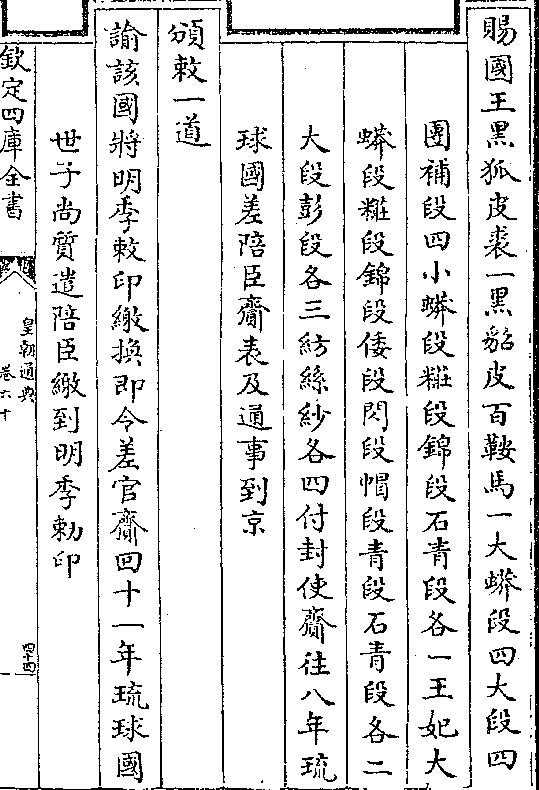 賜國王黑狐皮裘一黑貂皮百鞍馬一大蟒段四大段四
團補段四小蟒段糚段錦段石青段各一王妃大
蟒段糚段錦段倭段閃段帽段青段石青段各二
大段彭段各三紡絲紗各四付封使齎往八年琉
球國差陪臣齎表及通事到京
頒敕一道
諭該國將明季敕印繳換即令差官齎回十一年琉球國
世子尚質遣陪臣繳到明季勅印
欽定四庫全書
皇朝通典
卷六十
四十四